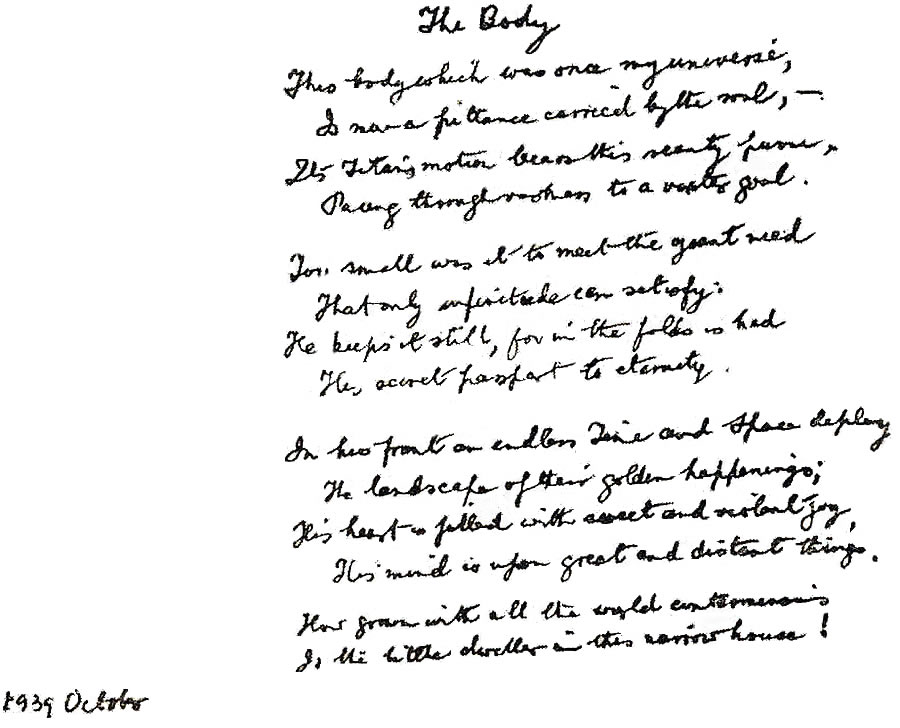 The Body
This body which was once my universe,
Is now a pittance carried by the soul, —
Its Titan's motion bears this scanty purse,
Pacing through vastness to a vaster goal.
Too small was it to meet the giant need
That only infinitude can satisfy:
He keeps it still, for in the folds is hid
His secret passport to eternity.
In his front an endless Time and Space deploy
The landscape of their golden happenings;
His heart is filled with sweet and violent joy,
His mind is upon great and distant things.
How grown with all the world conterminous
Is the little dweller in this narrow house!
1939 October